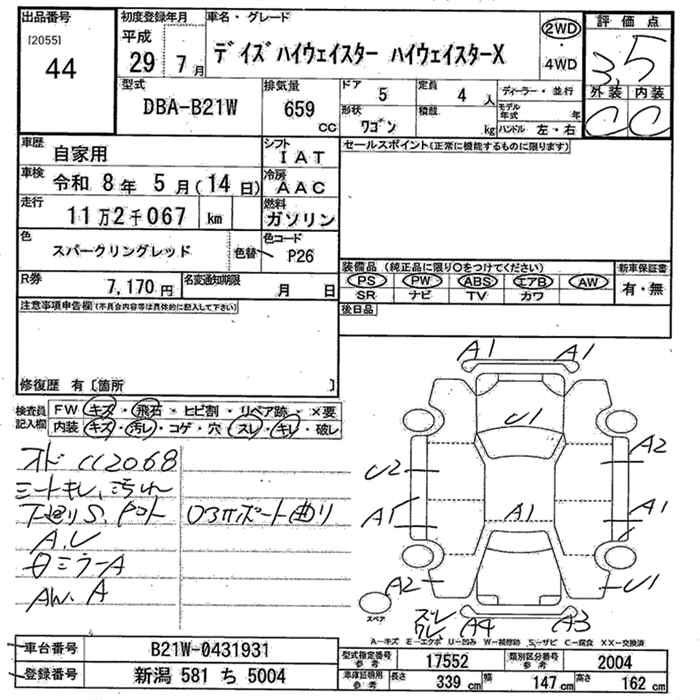 出品番号 初度登録年月 車名・グレード 評価点
[2055] 平成 2WD
44 29年 7月 デイズハイウェイスター ハイウェイスターX ・4WD 3.5
型式 排気量 ドア 5 定員 4人 ディーラー・並行 外装 内装
DBA-B21W 659cc 形状 ワゴン 積載 kg モデル年式 年 ハンドル 左・右 C C
車歴 自家用 シフト IAT セールスポイント(正常に機能するものに限ります)
車検 令和 8年 5月(14日) 冷房 AAC
走行 11万2千067 km 燃料 ガソリン
色 スパークリングレッド 色替 色コード P26
装備品 (純正品に限り○をつけてください) 新車保証書
R券 7,170円 名変通知期限 月 日 PS PW ABS エアB AW 有・無
SR ナビ TV カワ
注意事項申告欄(不具合内容等は具体的に記入して下さい) 後日品
修復歴 有〔箇所 〕
検査員記入欄 FW キズ・飛石・ヒビ割・リペア跡・×要
内装 キズ・汚レ・コゲ・穴・スレ・キレ・破レ
A1 A1
U1
オド 112068 U2 A2
シートキレ、汚れ
下廻りS. A1 A1 A1
A.U
ミラーA A2 U1
AW. A
スレ A4 A3
スペア
A-キズ E-エクボ U-凹み W-補修跡 S-サビ C-腐食 XX-交換済
車台番号 B21W-0431931 型式指定番号 参考 17552 類別区分番号 参考 2004
登録番号 新潟 581 ち 5004 車庫証明用 参考 長さ 339cm 幅 147cm 高さ 162cm